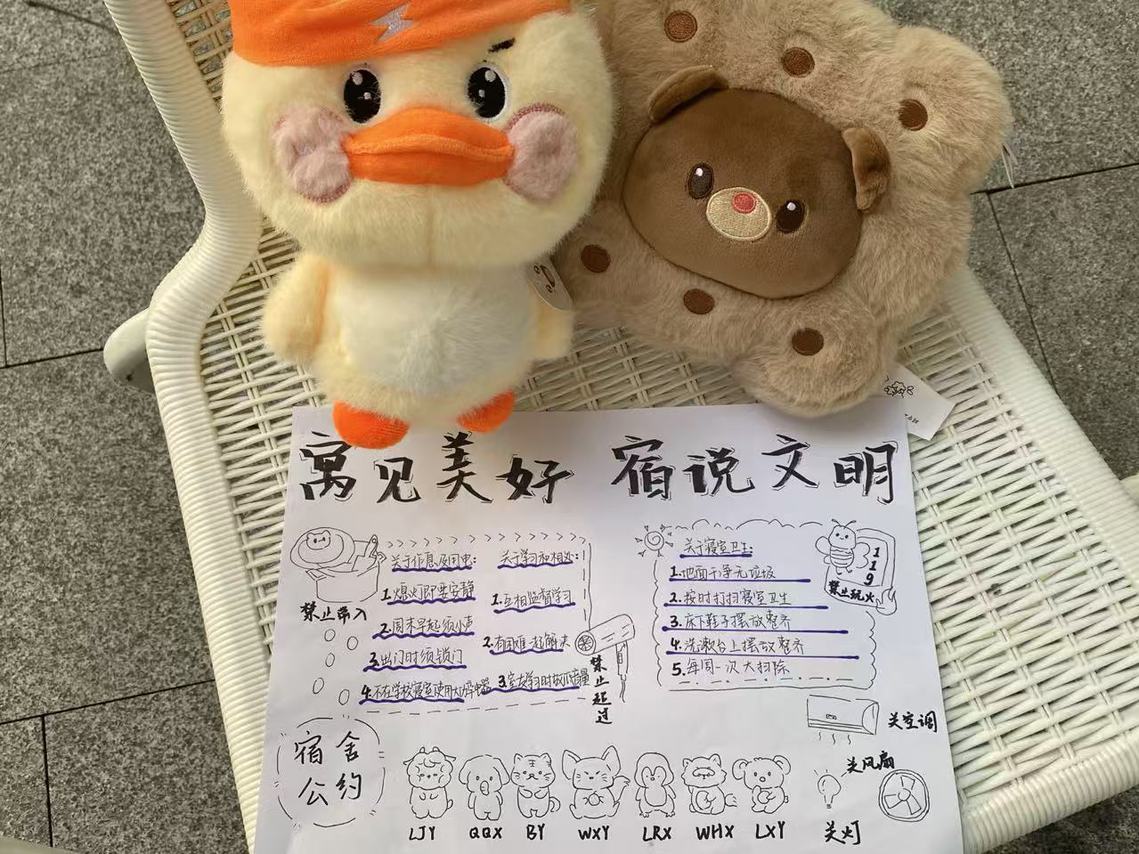 寓见美好 宿说文明
关于作息及用电:
1.熄灯即要安静
2.周末早起须小声
3.出门时须锁门
4.不在学校寝室使用大功率电器
关于学习和相处:
1.互相监督学习
2.有困难一起解决
3.室友学习时放小音量
禁止带入
禁止超过
关于寝室卫生:
1.地面干净无垃圾
2.按时打扫寝室卫生
3.床下鞋子摆放整齐
4.洗漱台上摆放整齐
5.每周一次大扫除
119
禁止玩火
关空调
关风扇
关灯
宿舍
公约
LJY QQX BY WXY LRX WHX LXY